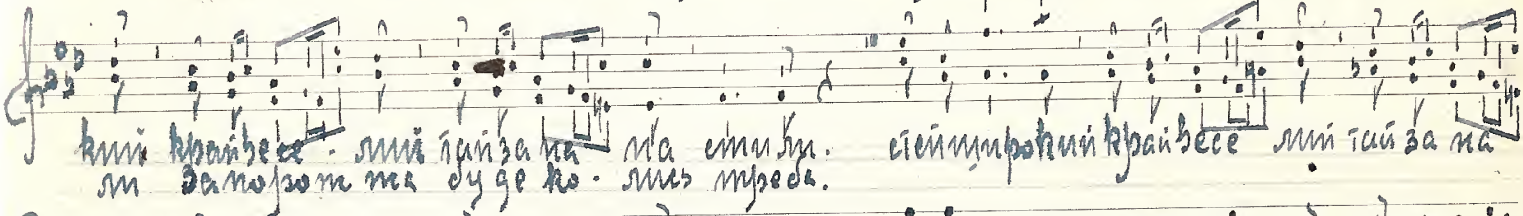 кий край весе - лий тай за па на сти ли. степ широкий край весе лий тай за па
ли запорож та буде ко - лись треба.